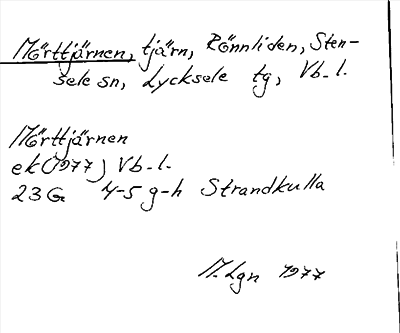 Mörttjärnen, tjärn, Rönnliden, Sten-
sele sn, Lycksele tg, Vb. l.
Mörttjärnen
ek (1977) Vb. l.
23 G 4-5 g-h Strandkulla
M. Lgn 1977